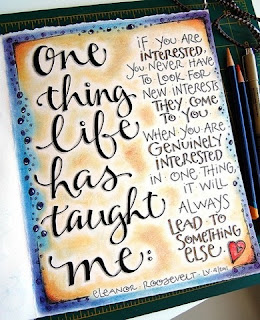 one
thing
life
has
taught
me:
IF YOU ARE
INTERESTED,
YOU NEVER HAVE
TO LOOK FOR
NEW INTERESTS.
THEY COME
TO YOU.
WHEN YOU ARE
GENUINELY
INTERESTED
IN ONE THING,
IT WILL
ALWAYS
LEAD TO
SOMETHING
ELSE.
ELEANOR ROOSEVELT